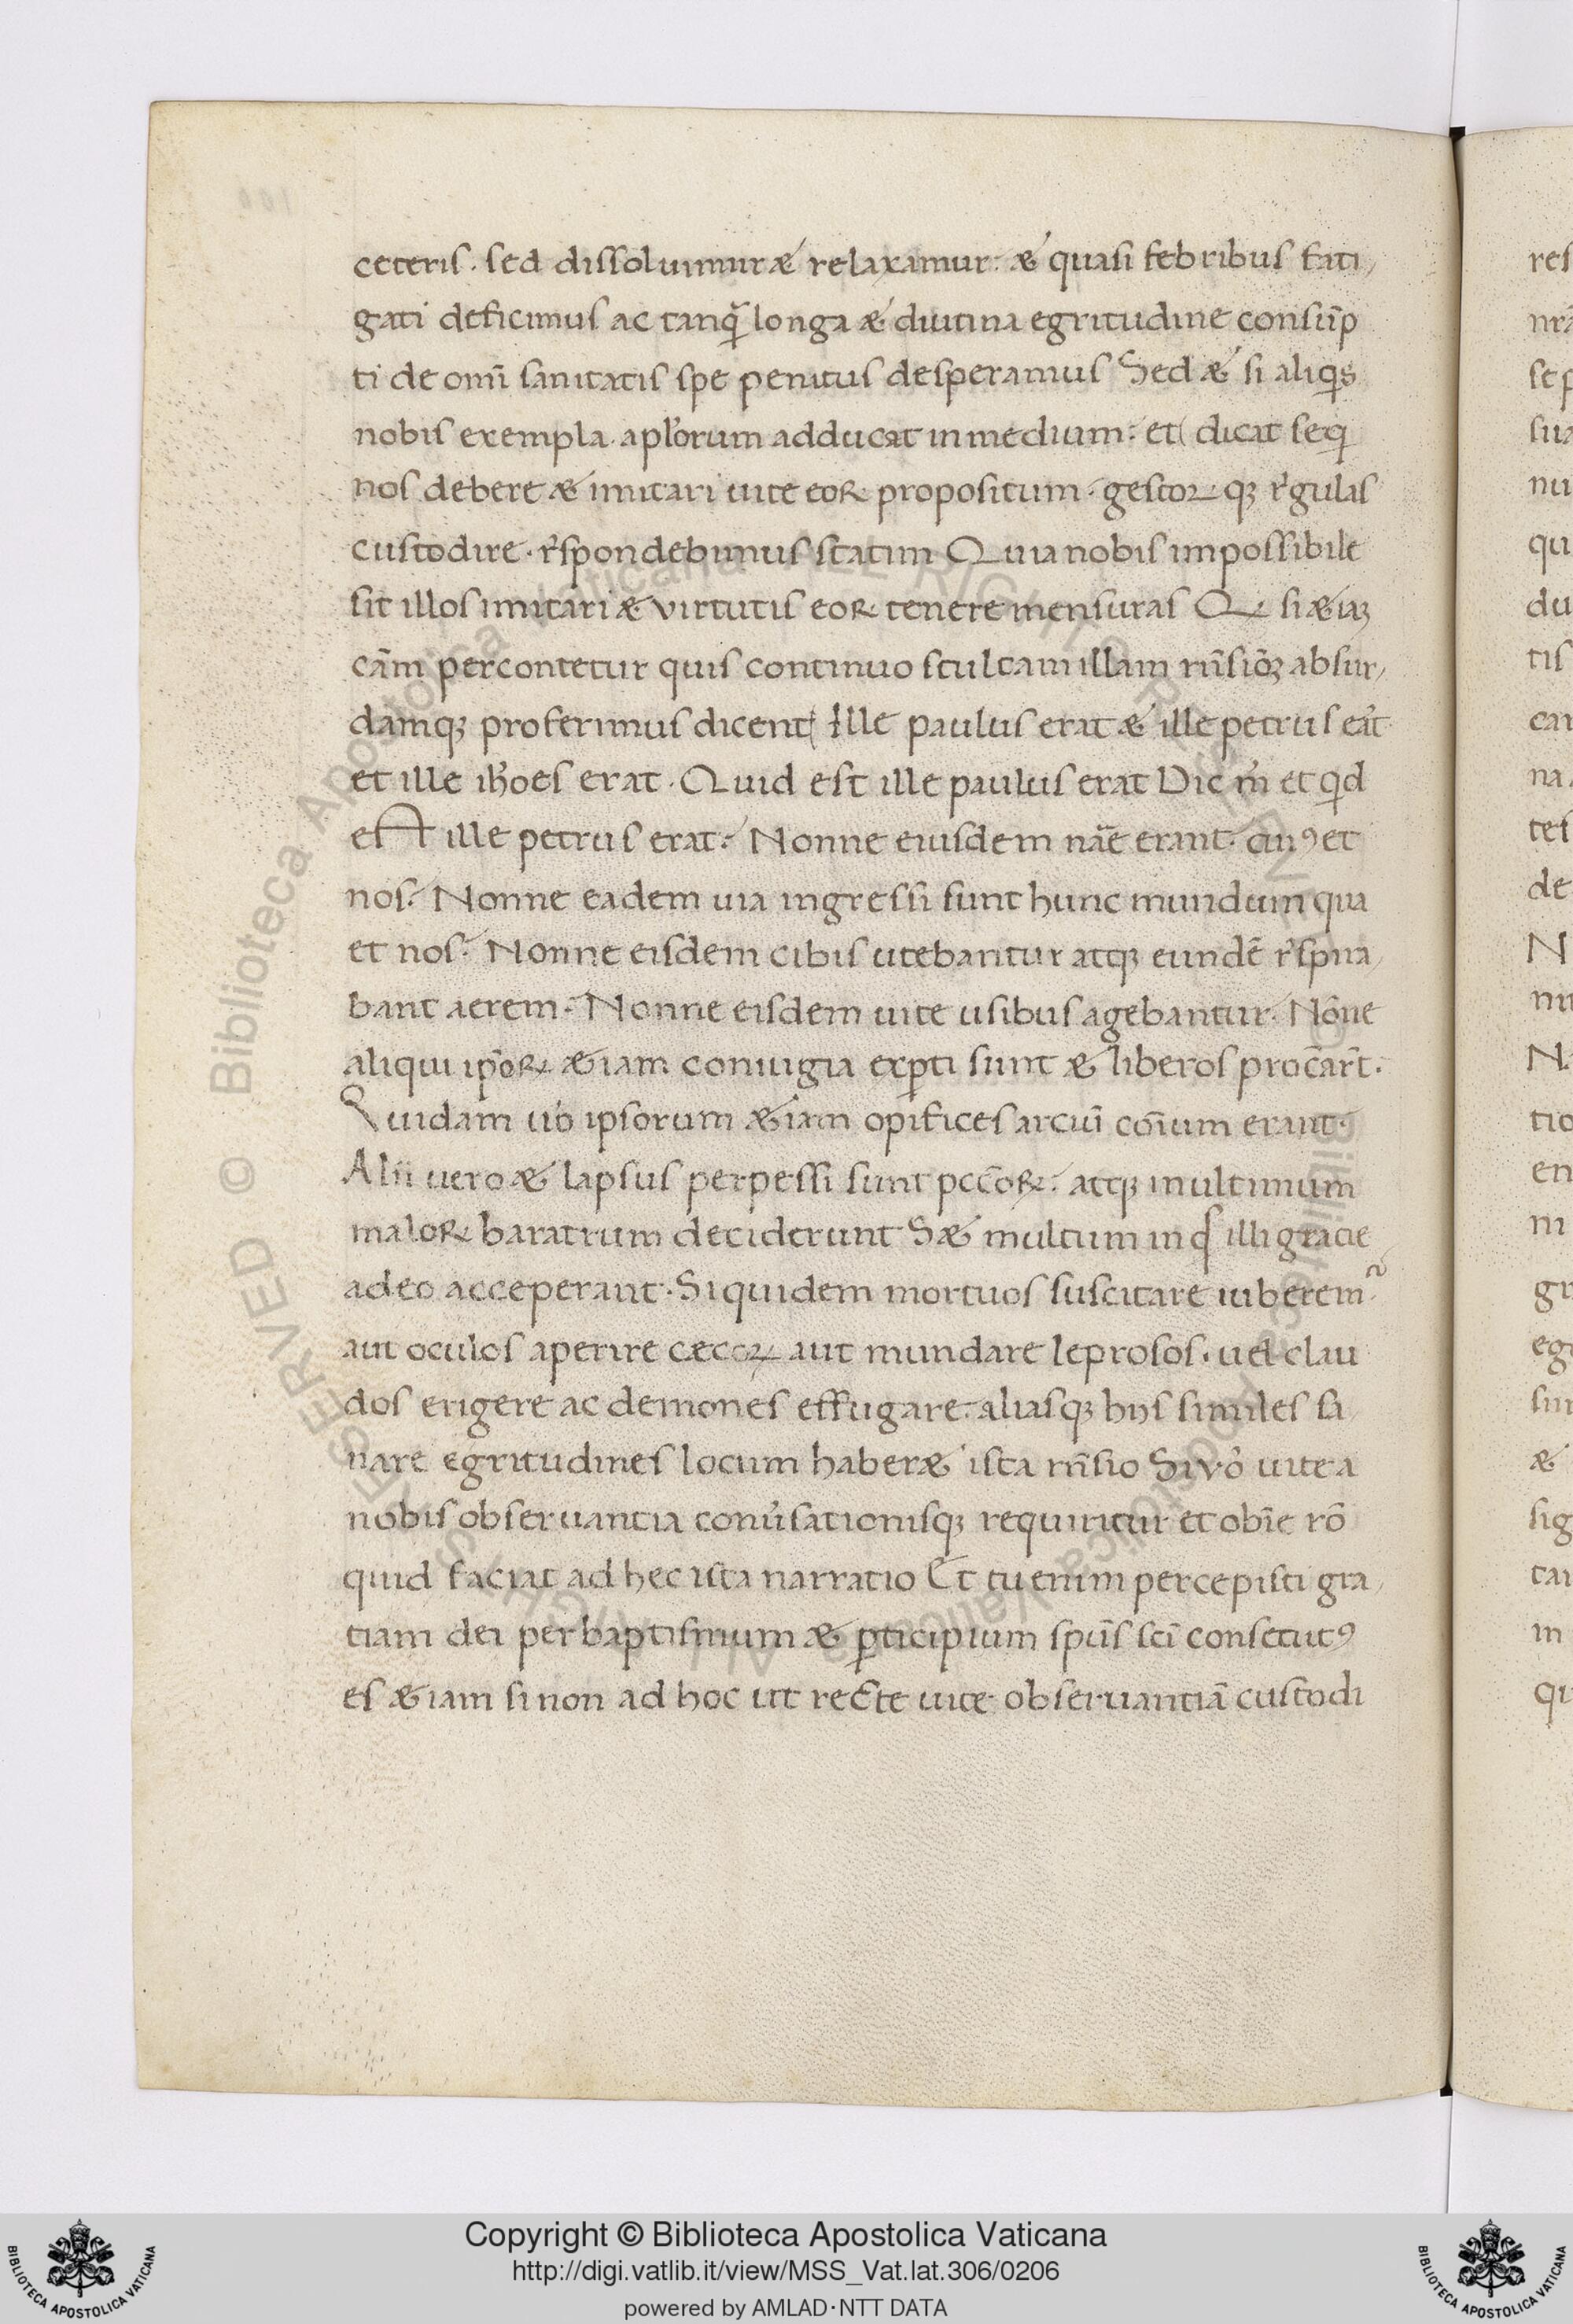 ceteris. sed dissoluimur & relaxamur: & quasi febribus fati,
gati deficimus ac tanq̃ longa & diutina egritudine consũp
ti de omĩ sanitatis spe penitus desperamus Sed & si aliqͥs
nobis exempla apl̓orum adducat in medium: et dicat seqͥ
nos debere & imitari uite eoꝝ propositum. gestoꝝ qꝫ r̓gulas
custodire. r̓spondebimus statim Quia nobis impossibile
sit illos imitari & virtutis eoꝝ tenere mensuras Q si &iaꝫ
cãm percontetur quis continuo stultam illam rñsiõꝫ absur,
damqꝫ proferimus dicent Ille paulus erat & ille petrus eãt
et ille ih̓oes erat. Quid est ille paulus erat Dic m̓ et qͥd
est ille petrus erat: Nonne eiusdem nãe erant. cuiꝯ et
nos: Nonne eadem uia ingressi sunt hunc mundum qua
et nos: Nonne eisdem cibis utebantur atqꝫ eundẽ r̓spira,
bant aerem: Nonne eisdem uite usibus agebantur. Nõne
aliqui ip̃oꝝ &iam coniugia exꝑti sunt & liberos procãrt̃.
Quidam ũo ipsorum &iam opifices arciũ coĩum erant.
Alii uero & lapsus perpessi sunt pccõꝝ. atqꝫ in ultimum
maloꝝ baratrum deciderunt S& multum inqͥ illi gracie
a deo acceperant. Si quidem mortuos suscitare iuberem̃
aut oculos aperire cecoꝝ aut mundare leprosos. uel clau
dos erigere ac demones effugare. aliasqꝫ hiis similes sa,
nare egritudines locum haber& ista rñsio Si v̓o uite a
nobis obseruantia conu̓sationisqꝫ requiritur et obĩe rõ
quid faciat ad hec ista narratio Et tu enim percepisti gra,
tiam dei per baptismum & ꝑticipium spũs sci̓ consecutꝯ
es &iam si non ad hoc ut recte uite obseruantiã custodi
res
nrã
sep
sua
nu
qu
du
tis
car
na
tes
de
N
nu
N
tio
en
ni
gr
ege
sin
&
sig
tar
in
qu
Copyright © Biblioteca Apostolica Vaticana
http://digi.vatlib.it/view/MSS_Vat.lat.306/0206
powered by AMLAD·NTT DATA
BIBLIOTECA APOSTOLICA VATICANA
BIBLIOTECA APOSTOLICA VATICANA